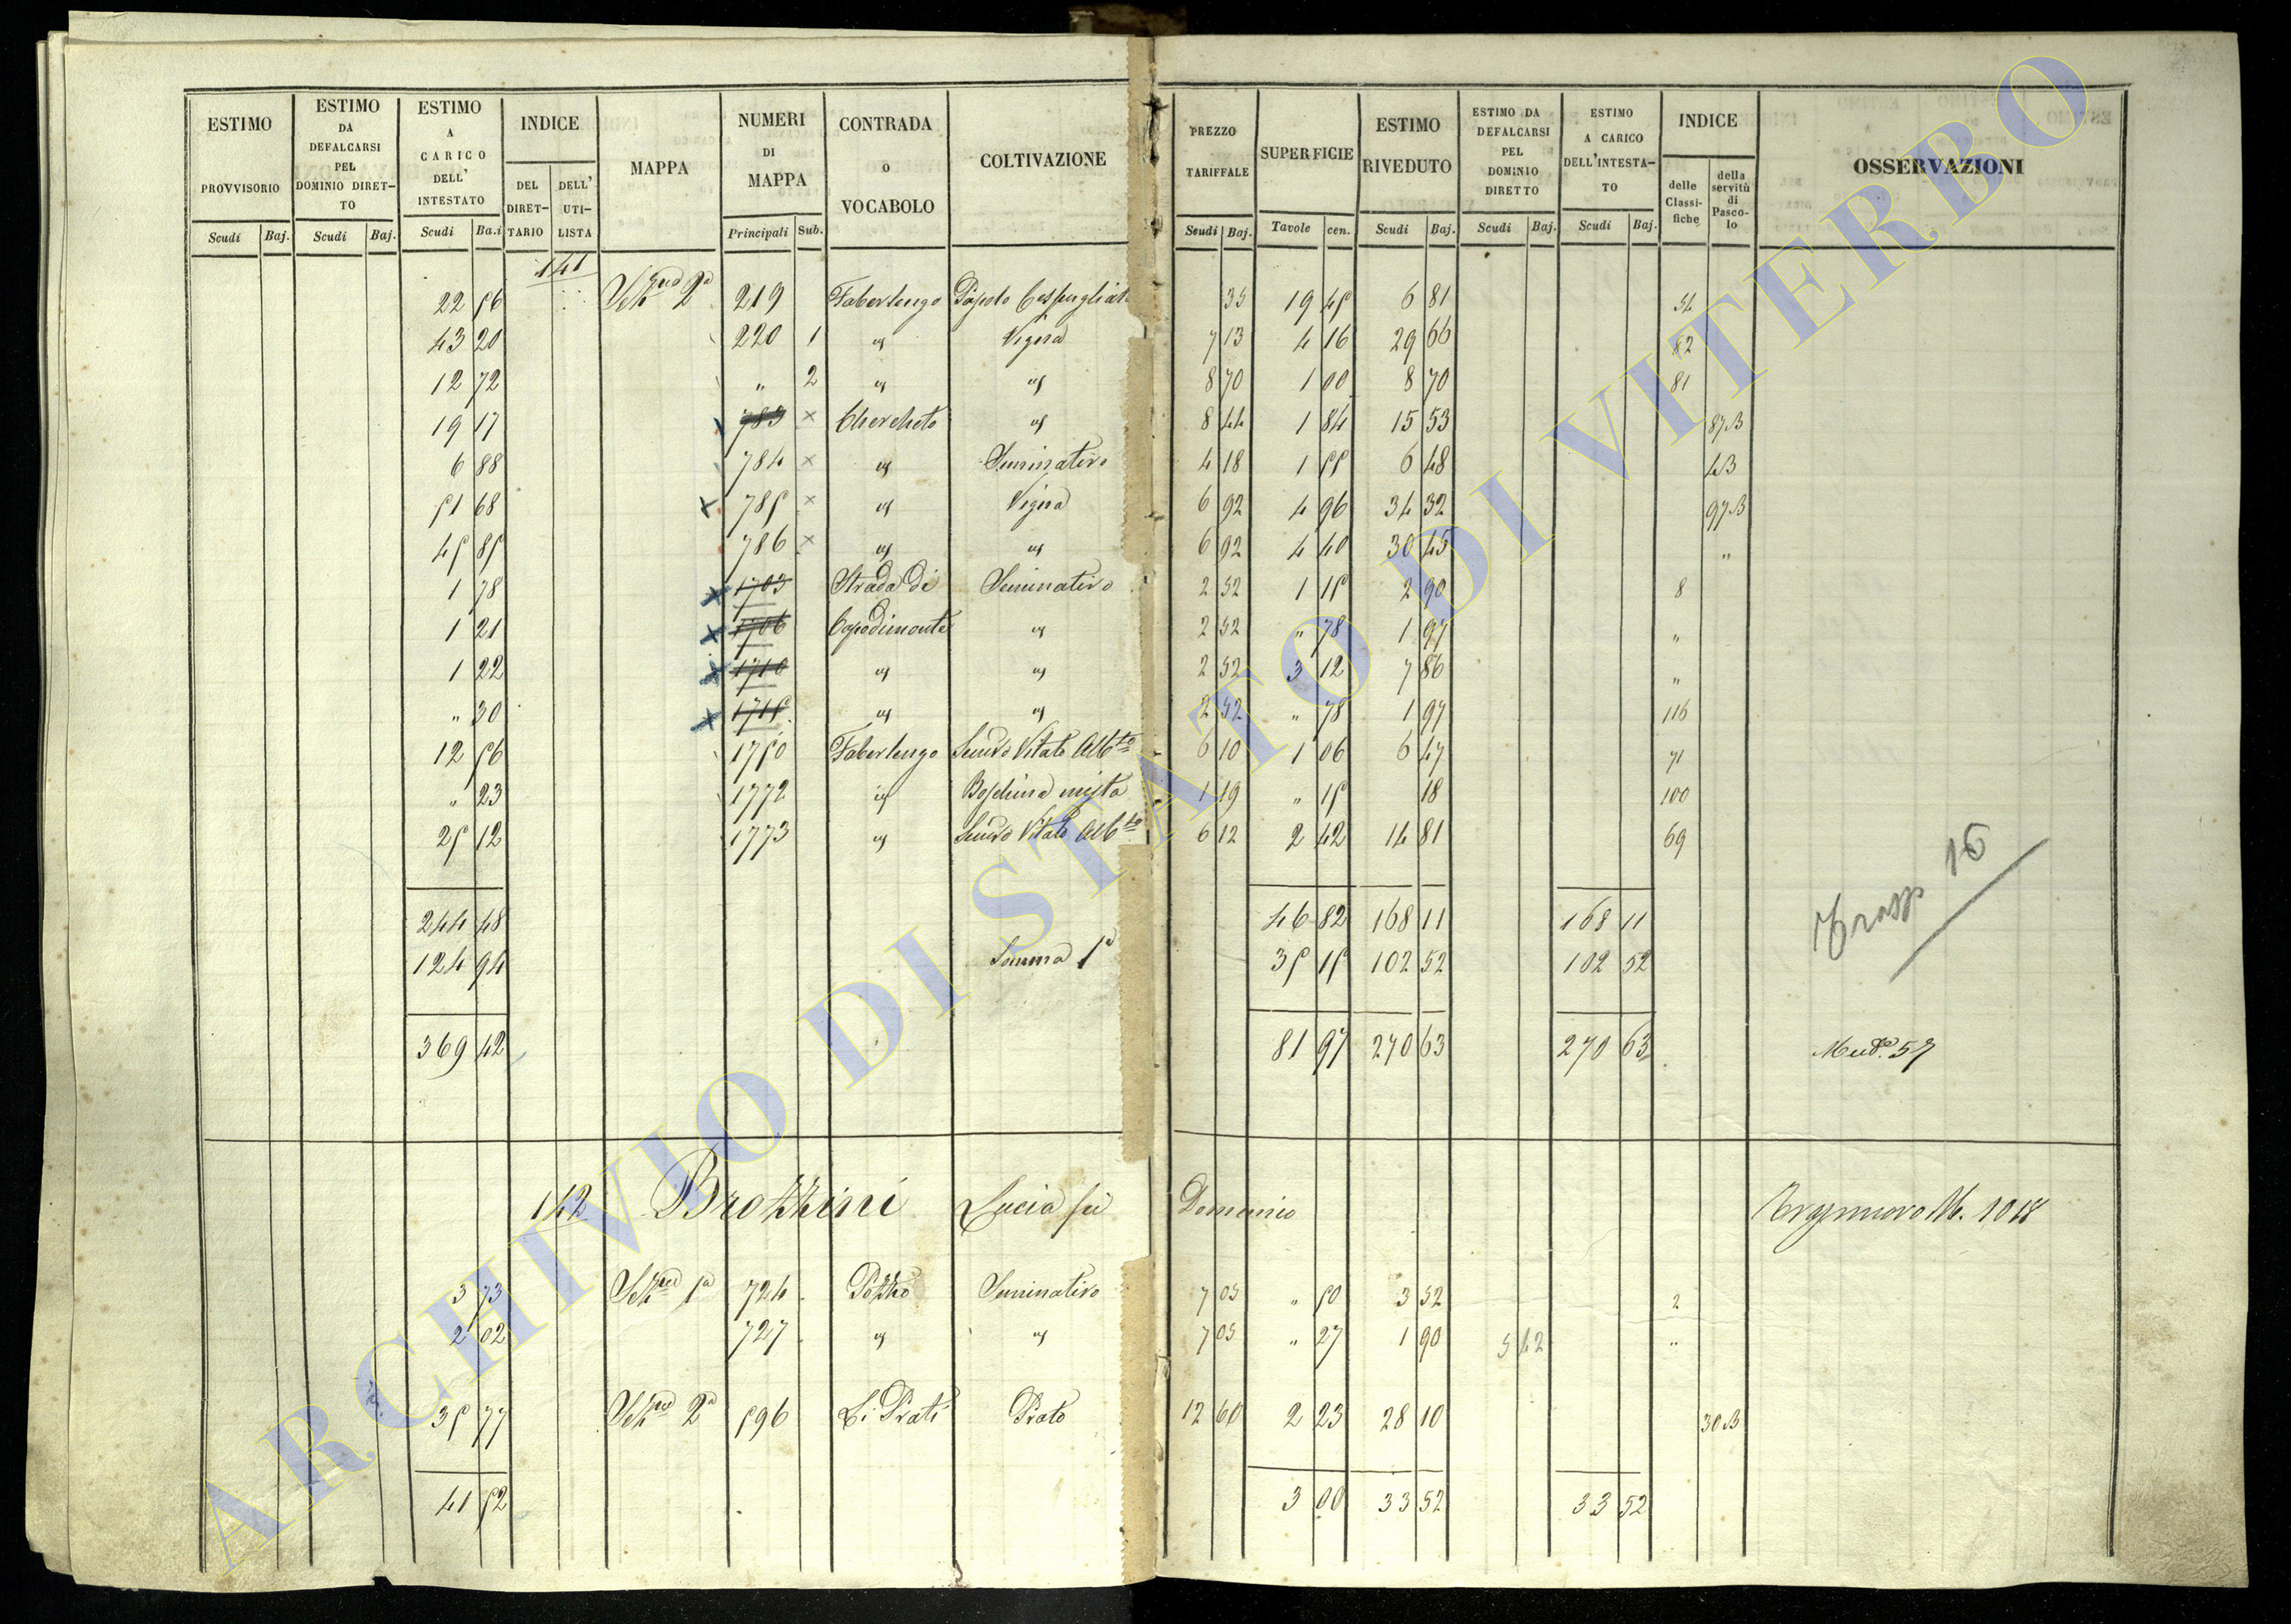 ESTIMO PROVVISORIO Scudi Baj. ESTIMO DA DEFALCARSI PEL DOMINIO DIRETTO Scudi Baj. ESTIMO A CARICO DELL' INTESTATO Scudi Ba.i INDICE DEL DIRETTARIO DELL' UTILISTA MAPPA NUMERI DI MAPPA Principali Sub. CONTRADA o VOCABOLO COLTIVAZIONE PREZZO TARIFFALE Scudi Baj. SUPERFICIE Tavole cen. ESTIMO RIVEDUTO Scudi Baj. ESTIMO DA DEFALCARSI PEL DOMINIO DIRETTO Scudi Baj. ESTIMO A CARICO DELL'INTESTATO Scudi Baj. INDICE delle Classifiche della servitù di Pascolo OSSERVAZIONI
141
22 56 2a 219 Faberlengo Cespugliato 35 19 45 6 81 54
43 20 220 1 " Vigna 7 13 4 16 29 66 82
12 72 " 2 " " 8 70 1 00 8 70 81
19 17 783 × Chercheto " 8 44 1 84 15 53 87B
6 88 784 × " Seminativo 4 18 1 55 6 48 4B
51 68 × 785 × " Vigna 6 92 4 96 34 32 97B
45 85 786 × " " 6 92 4 40 30 45 "
1 78 × 1703 Strada di Seminativo 2 52 1 15 2 90 8
1 21 × 1706 Capodimonte " 2 52 " 78 1 97 "
1 22 × 1710 " " 2 52 3 12 7 86 "
" 30 × 1715 " " 2 52 " 78 1 97 116
12 56 1750 Faberlengo Semvo Vitato Albto 6 10 1 06 6 47 71
" 23 1772 " Boschina mista 1 19 " 15 18 100
25 12 1773 " Semvo Vitato Albto 6 12 2 42 14 81 69
244 48 46 82 168 11 168 11 16
124 94 Somma 1a 35 15 102 52 102 52
369 42 81 97 270 63 270 63 57
142 Brozzini Lucia fu Domenico 1018
3 73 1a 724 Pozzo Seminativo 7 05 " 50 3 52 2
2 02 727 " " 7 05 " 27 1 90 5 42 "
35 77 2a 596 Li Prati Prato 12 60 2 23 28 10 30B
41 52 3 00 33 52 33 52
ARCHIVIO DI STATO DI VITERBO